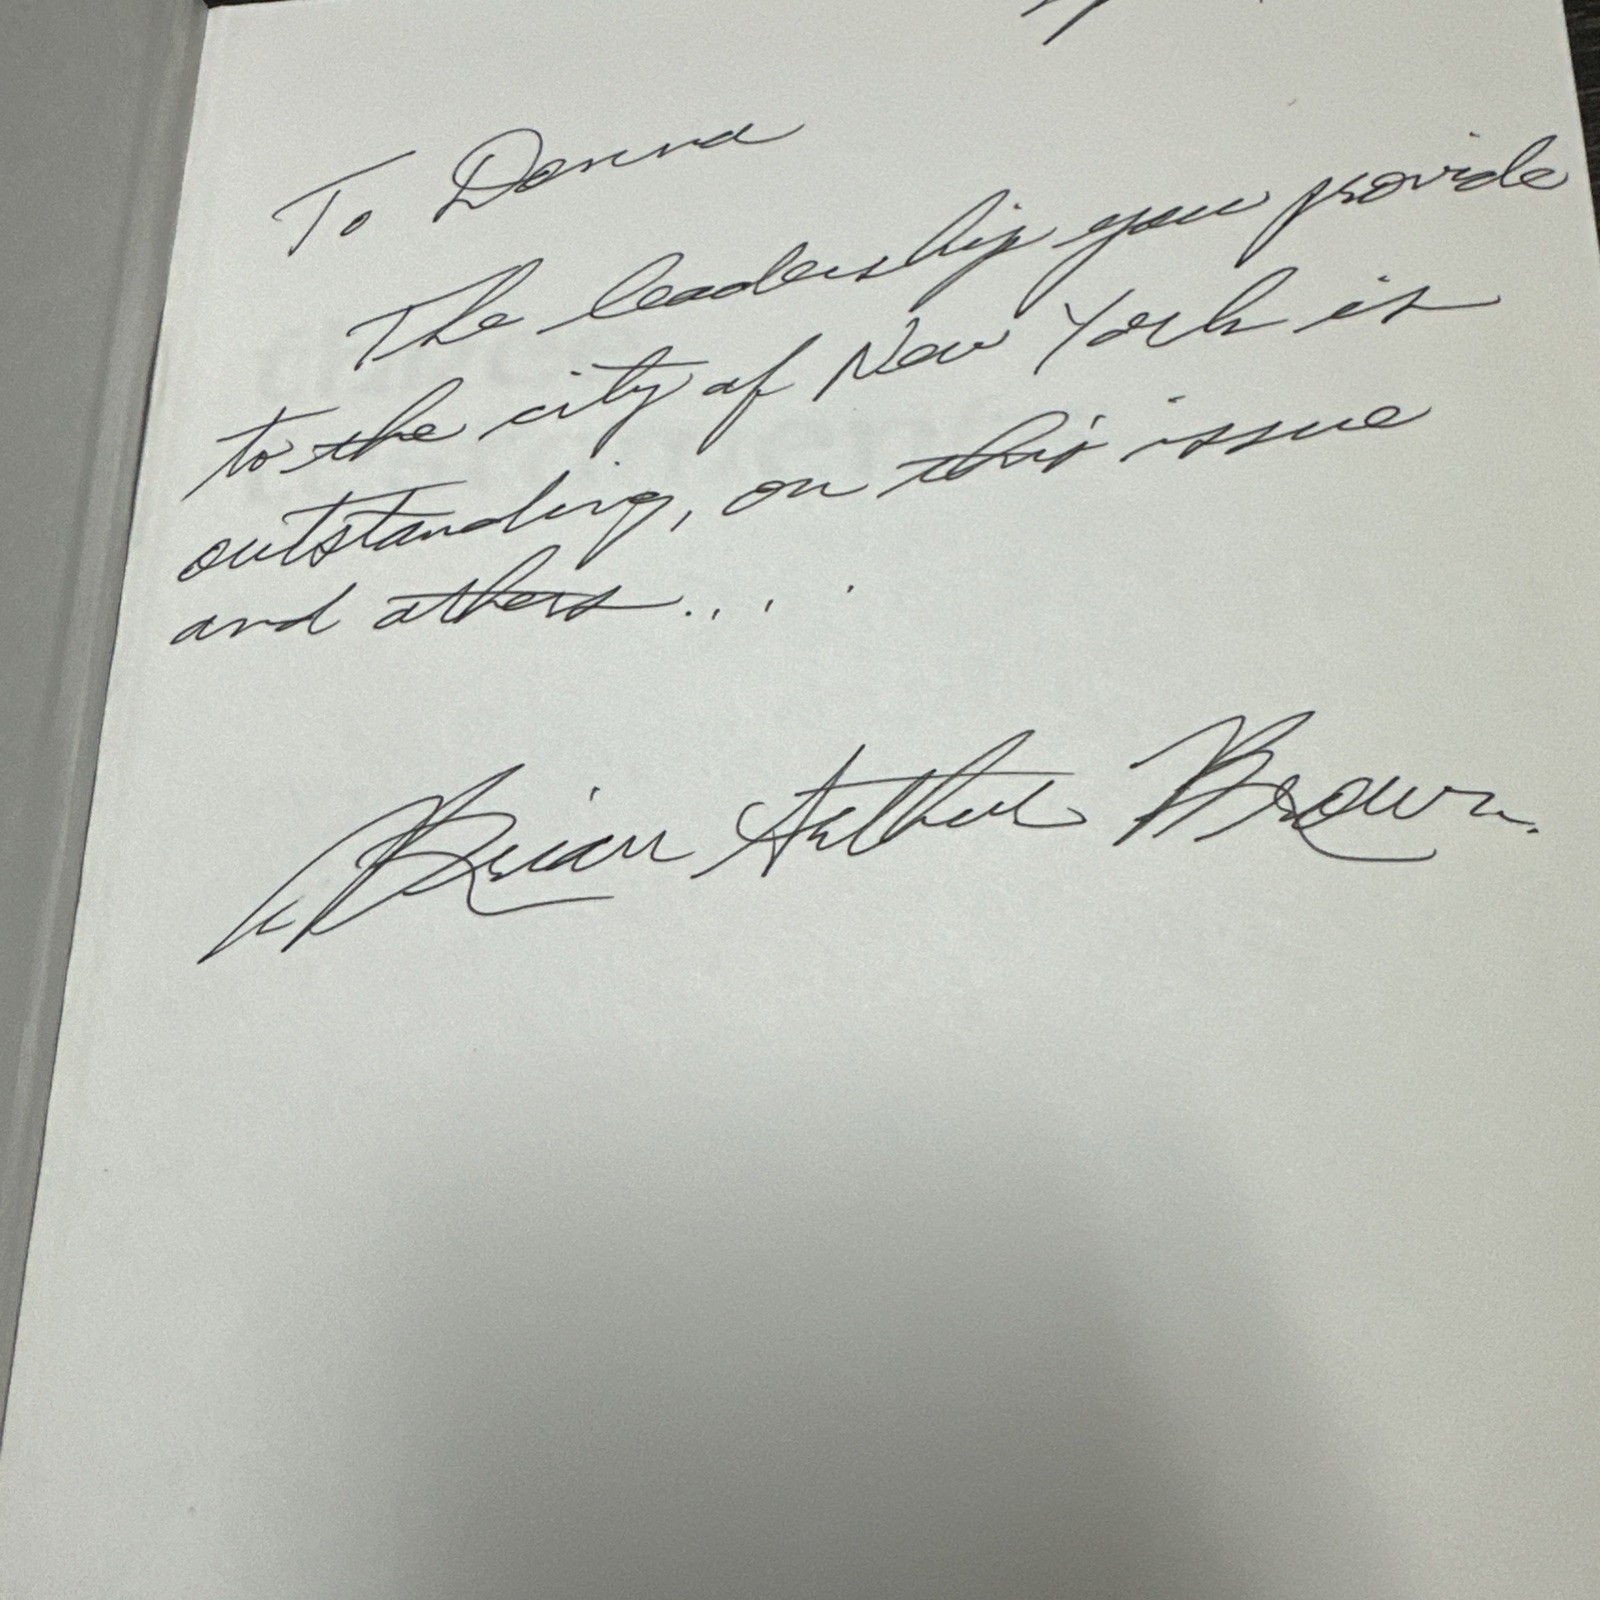 To Donna
The leadership you provide
to the city of New York is
outstanding, on this issue
and others....
Brian Arthur Brown.